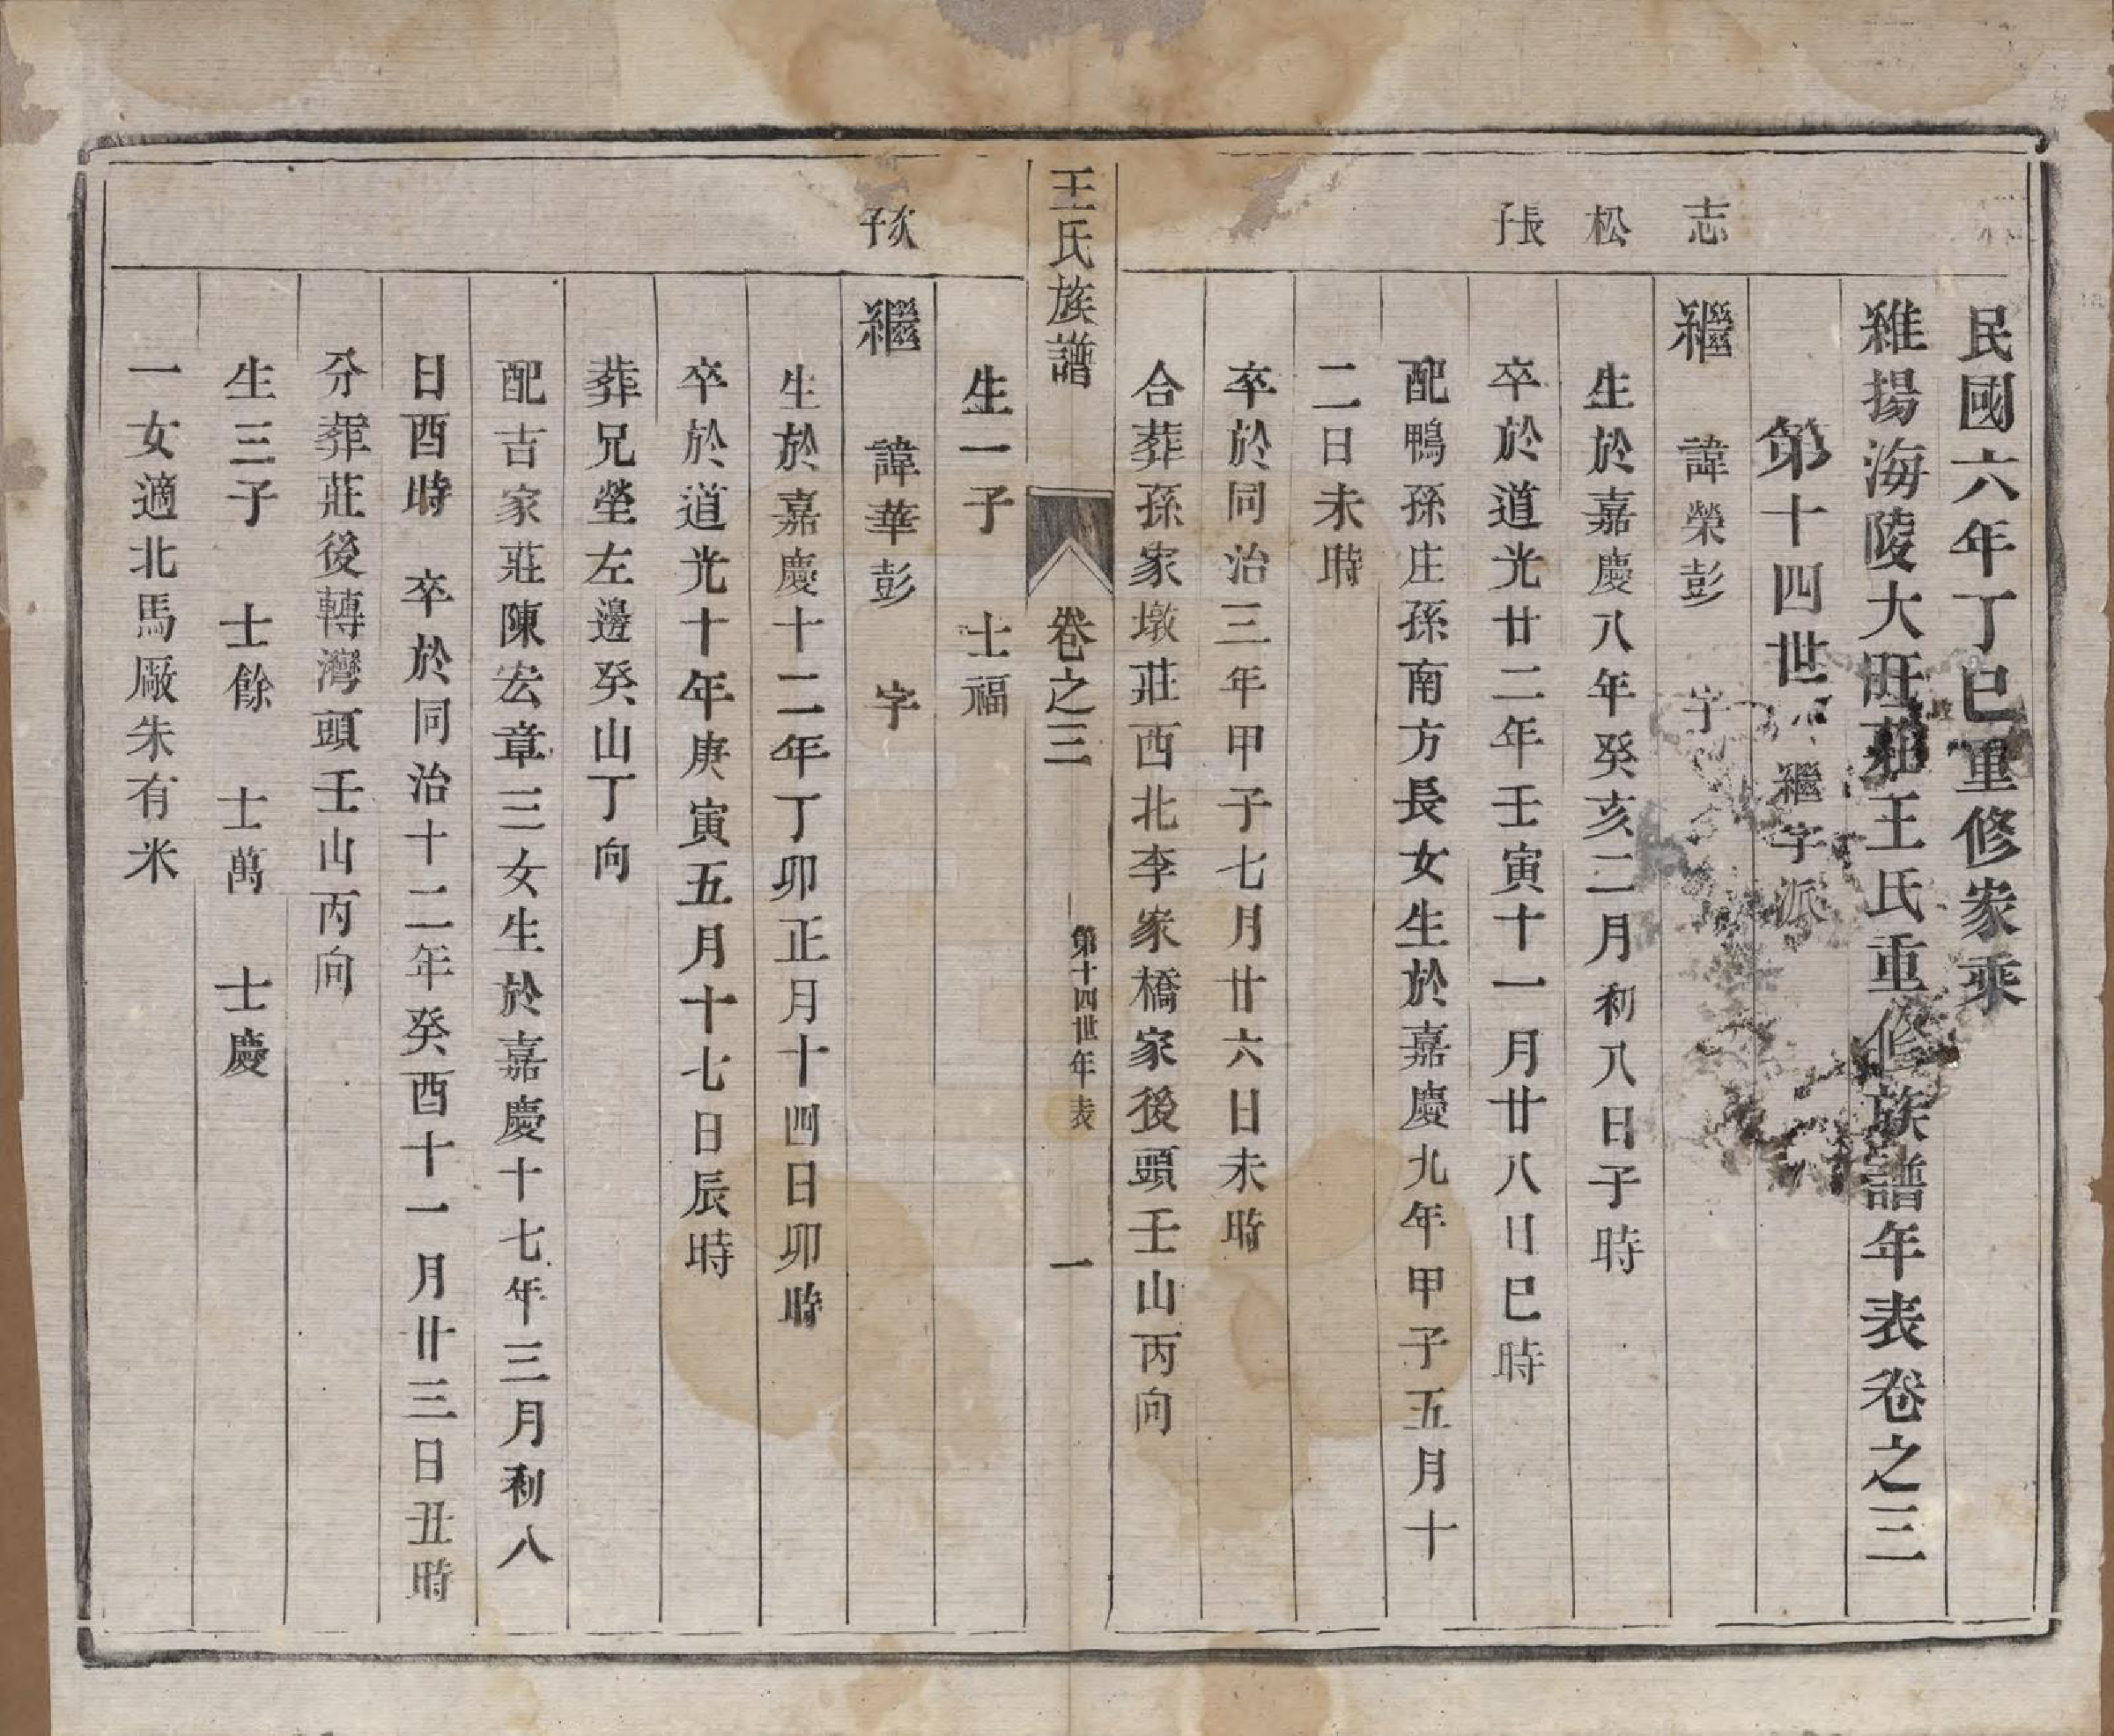 民國六年丁巳重修家乘
維揚海陵大旺莊王氏重修族譜年表卷之三
第十四世 繼字派
志
繼 諱榮彭 字
松
生於嘉慶八年癸亥二月初八日子時
長子
卒於道光廿二年壬寅十一月廿八日巳時
配鴨孫庄孫南方長女生於嘉慶九年甲子五月十
二日未時
卒於同治三年甲子七月廿六日未時
合葬孫家墩莊西北李家橋家後頭壬山丙向
王氏族譜 卷之三 第十四世年表 一
生一子 士福
次子
繼 諱華彭 字
生於嘉慶十二年丁卯正月十四日卯時
卒於道光十年庚寅五月十七日辰時
葬兄塋左邊癸山丁向
配吉家莊陳宏章三女生於嘉慶十七年三月初八
日酉時 卒於同治十二年癸酉十一月廿三日丑時
分葬莊後轉灣頭壬山丙向
生三子 士餘 士萬 士慶
一女適北馬厰朱有米